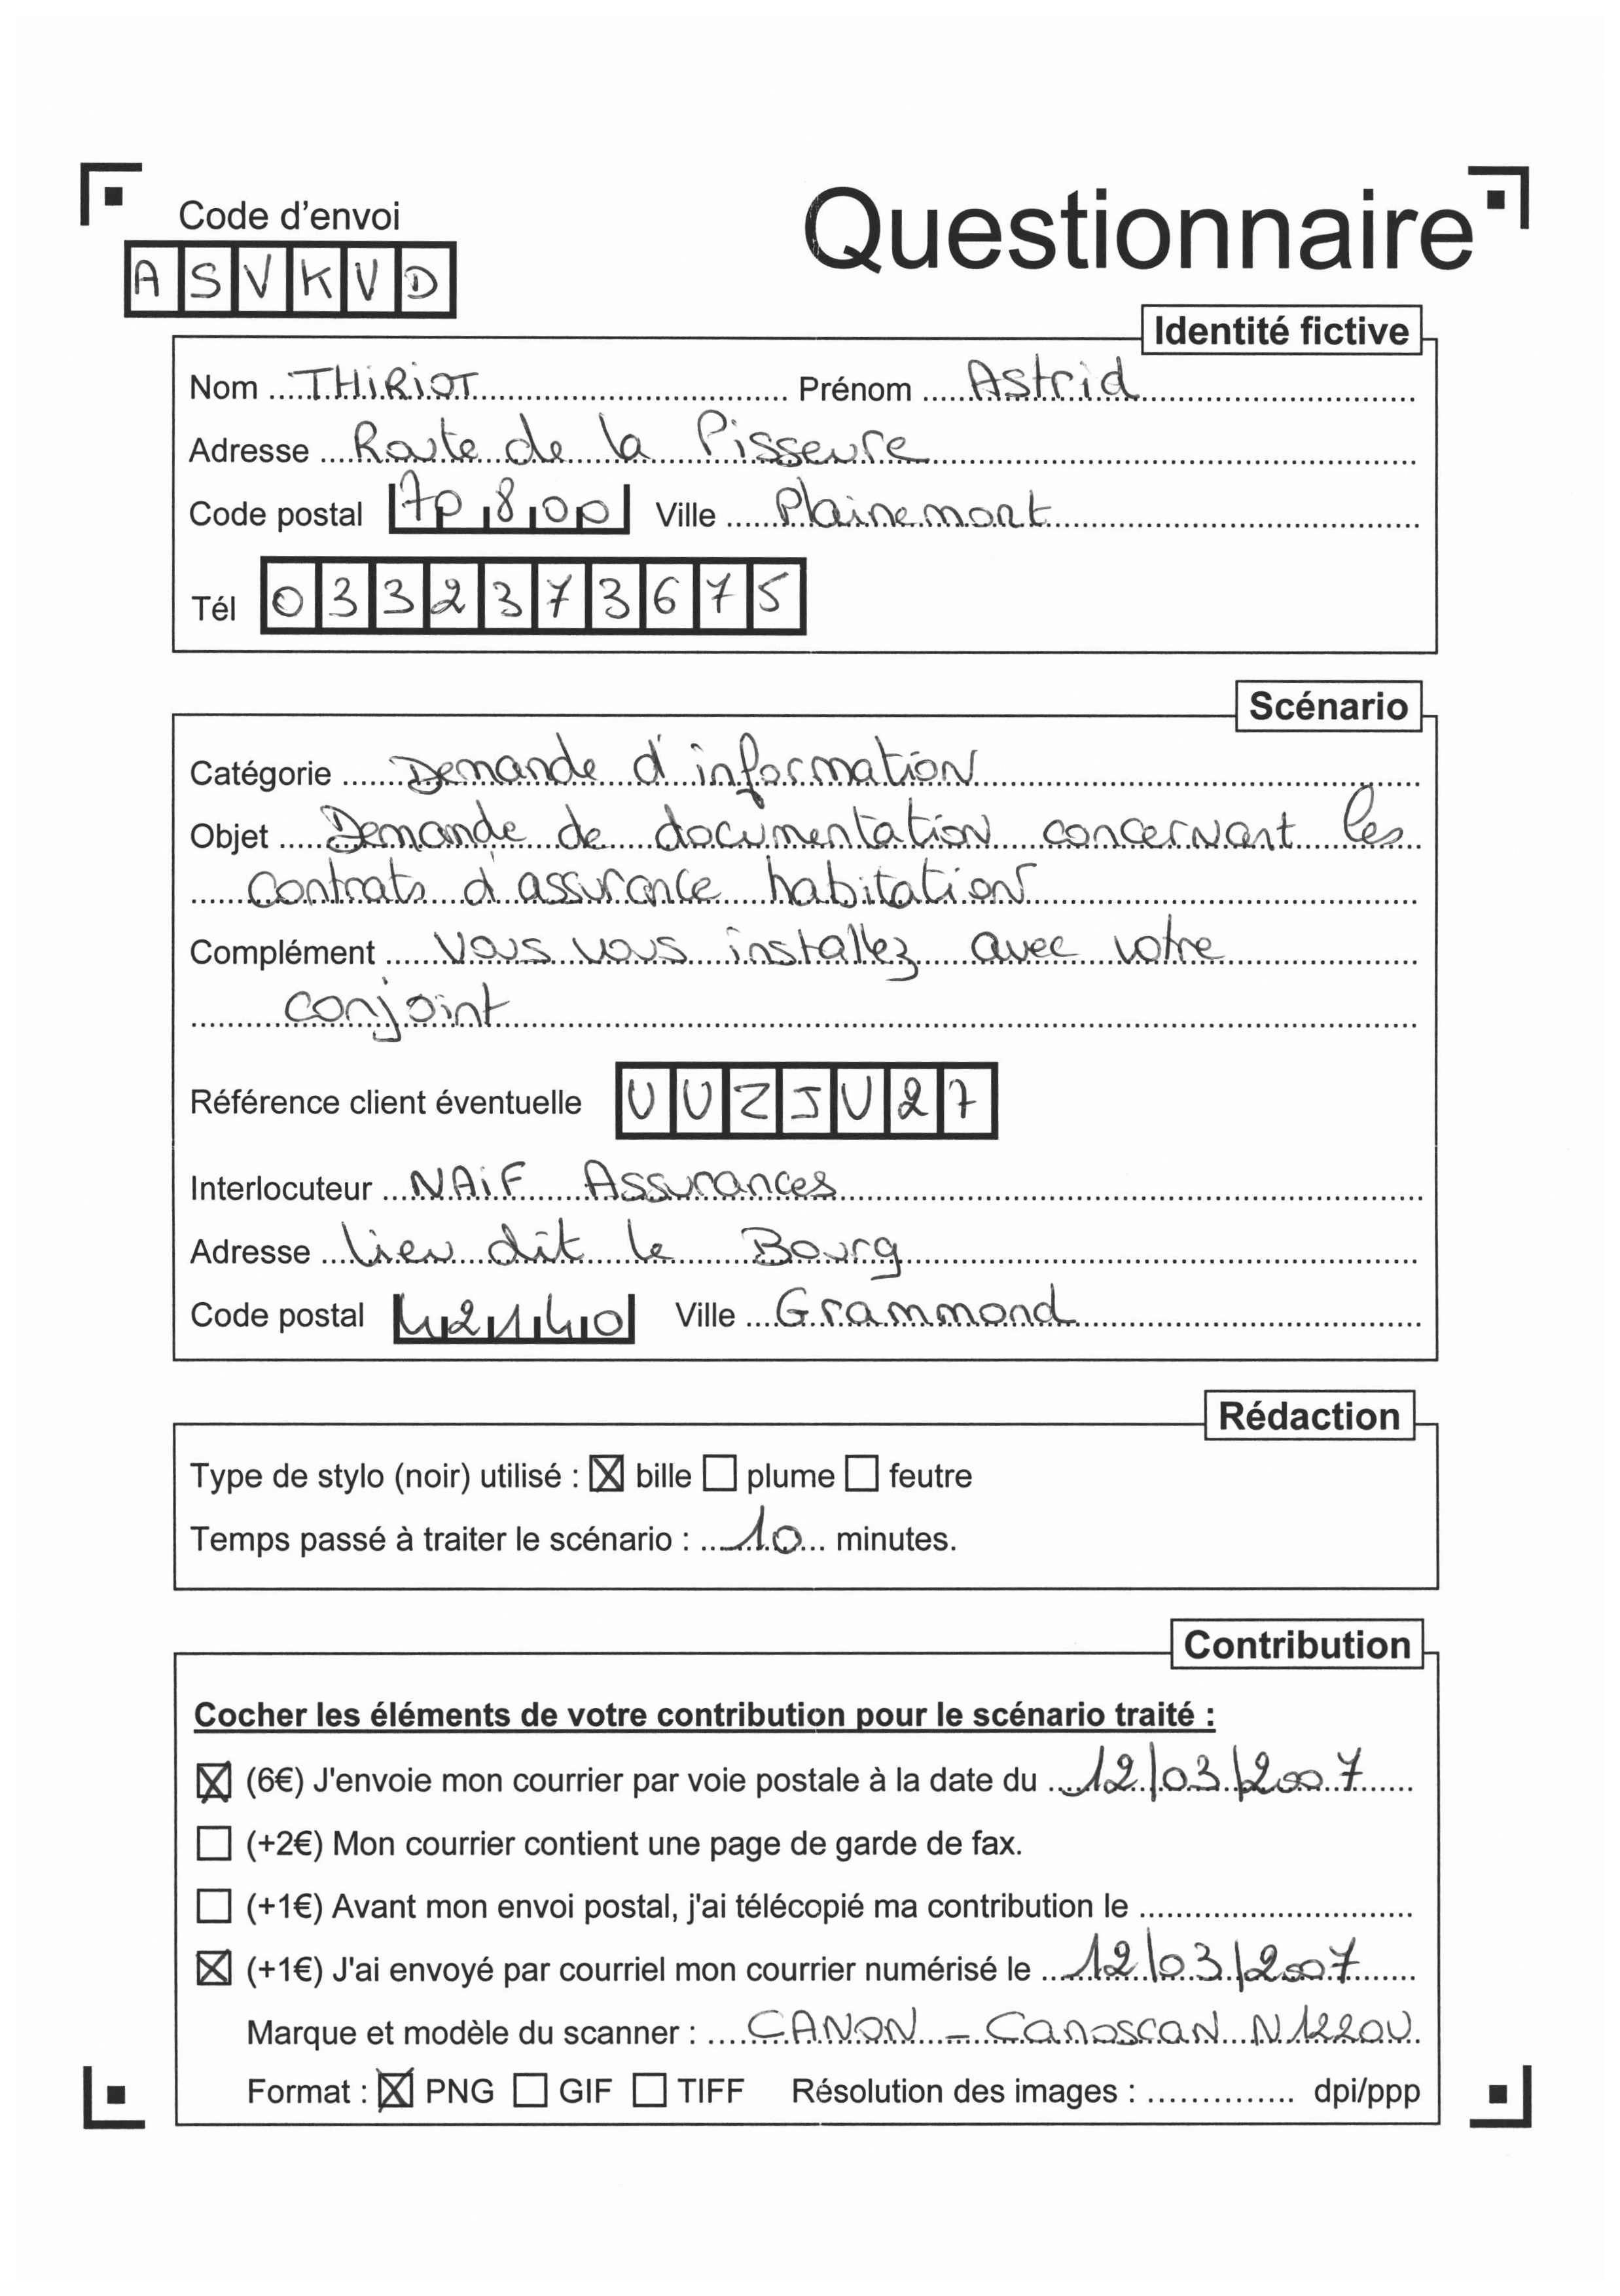 Code d'envoi
Questionnaire
ASVKVD
Identité fictive
Nom THiRiOT Prénom Astrid
Adresse Route de la Pisseure
Code postal 70800 Ville Plainemont
Tél 0332373675
Scénario
Catégorie Demande d'information
Objet Demande de documentation concernant les
contrats d'assurance habitation
Complément Vous vous installez avec votre
conjoint
Référence client éventuelle UUZJU27
Interlocuteur NAiF Assurances
Adresse lieu dit le Bourg
Code postal 42140 Ville Grammond
Rédaction
Type de stylo (noir) utilisé : ☒ bille ☐ plume ☐ feutre
Temps passé à traiter le scénario : 10 minutes.
Contribution
Cocher les éléments de votre contribution pour le scénario traité :
☒ (6€) J'envoie mon courrier par voie postale à la date du 12/03/2007
☐ (+2€) Mon courrier contient une page de garde de fax.
☐ (+1€) Avant mon envoi postal, j'ai télécopié ma contribution le
☒ (+1€) J'ai envoyé par courriel mon courrier numérisé le 12/03/2007
Marque et modèle du scanner : CANON - Canoscan N1220U
Format : ☒ PNG ☐ GIF ☐ TIFF Résolution des images : dpi/ppp